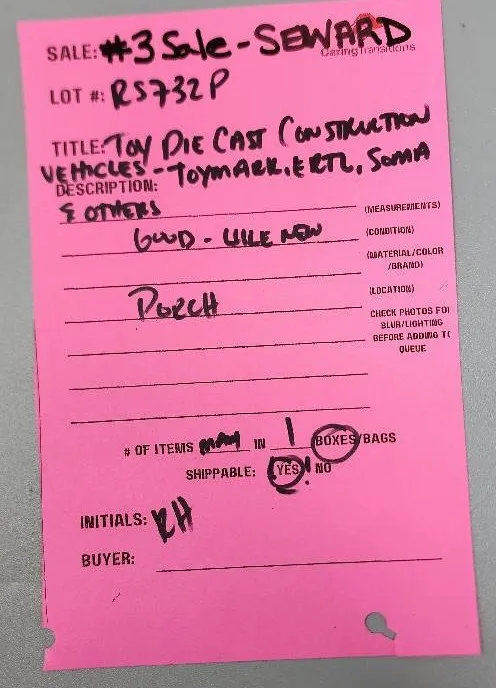 SALE: #3 Sale - SEWARD
Caring Transitions
LOT #: RS732P
TITLE: TOY DIE CAST CONSTRUCTION
VEHICLES - TOYMARK, ERTL, SOMA
DESCRIPTION:
& OTHERS
(MEASUREMENTS)
GOOD - LIKE NEW (CONDITION)
(MATERIAL/COLOR
/BRAND)
PORCH (LOCATION)
CHECK PHOTOS FOR
BLUR/LIGHTING
BEFORE ADDING TO
QUEUE
# OF ITEMS MANY IN 1 BOXES/BAGS
SHIPPABLE: YES! NO
INITIALS: RH
BUYER: